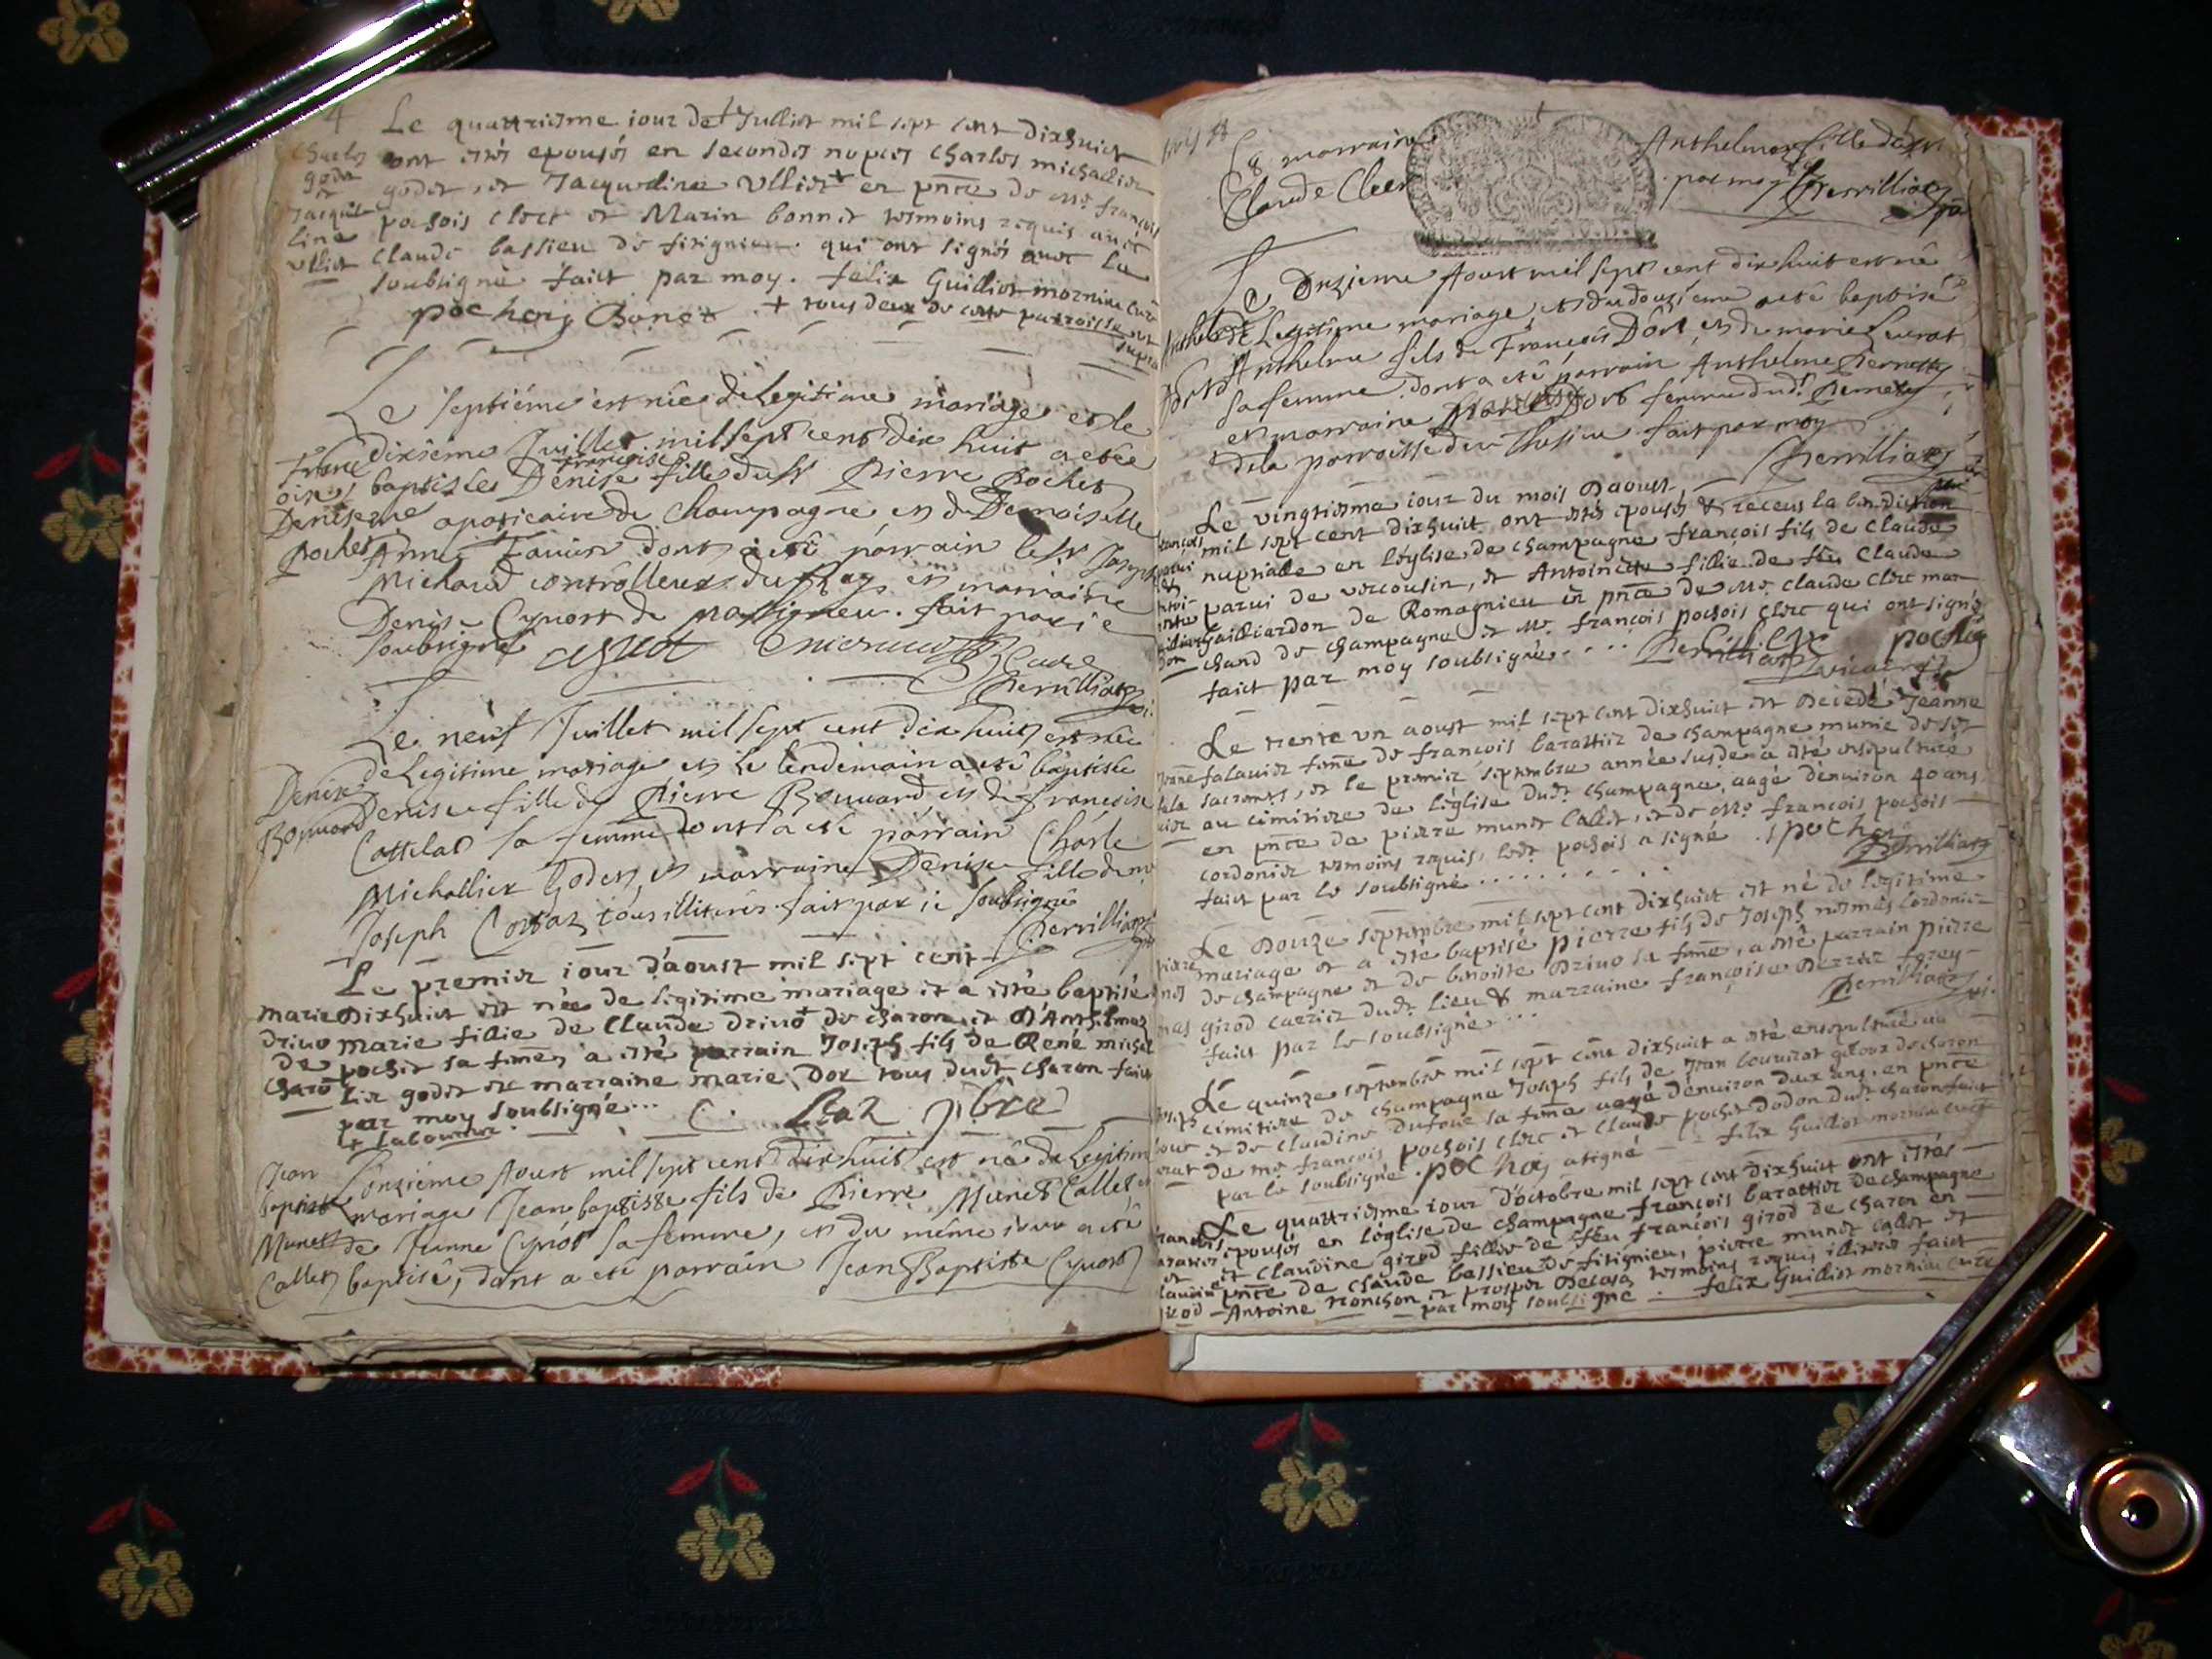 4 Le quattriesme iour de + Julliet mil sept cent dixhuict
Charles ont estés epousés en secondes nopces Charles michallier
godet godet, et Jacqueline Ulliet + en pnce de Me françois
et
Jacque pochois clerc et Marin bonnet tesmoins requis avec
line Claude bassieu de fitignieu qui ont signés avec le
Ulliet soubsigné faict par moy. felix Guilliot mornieu curé
pochoy Bonet + tous deux de cette parroisse ut
supra
Le septiéme est née de Legitime mariage et le
dixiéme Juillet mil sept cent dix huit a etée
franc
françoise
oise baptisée Denise fille du Sr Pierre Pochet
Denise me apoticaire de Champagne et de Demoiselle
pochet Anne Favier dont a eté parrain le Sr Joseph
Michaud controlleur du Roy et marraine
Denise Cynost de massignieu. fait par ie
soubsigné
Perrilliat
Le neuf Juillet mil sept cent dix huit est née
de Legitime mariage et le lendemain a eté baptisée
Denise
Bonnard Denise fille de Pierre Bonnard et de françoise
Cattelas sa femme dont a eté parrain Charle
Michallier Godet, et marraine Denise fille de me
Joseph Cottaz tous illiterés. fait par ie soubsigné
Perrilliat
Le premier iour d'aoust mil sept cent
marie dixhuict est née de legitime mariage et a esté baptisé
drivo marie fillie de Claude drivo + de charon et d'Anthelmaz
de pochet sa fme, a esté parrain Joseph fils de René michal
charon lier godet et marraine marie Dor tous dudt charon faict
par moy soubsigné...
+ laboureur. C. Staz pbre
Jean L'onziéme Aout mil sept cent dix huit est né de Legitime
baptiste mariage Jean baptiste fils de Pierre Munet Callet
Munet de Jeanne Cynost sa femme, et du méme iour a eté
Callet baptisé, dont a eté parrain Jean Baptiste Cynost
Et marraine Anthelmaz fille de
Claude Clerc par moy
Perrilliat
Le Onzieme Aoust mil sept cent dix huit est né
de Legitime mariage, et du douziéme a eté baptisé
Anthelme fils de François Dort, et de marie Levrat
sa femme dont a eté parrain Anthelme Pernetty
et marraine Dort femme dudt Pernetty
de la parroisse de fait par moy
Perrilliat
Le vingtiesme iour du mois Daoust
mil sept cent dixhuict ont estés epousés & receus la benediction
nuptialle en l'église de Champagne françois fils de Claude
parui de vercousin, et Antoinette fillie de feu Claude
Gailliardon de Romagnieu en pnce de Me. Claude Clerc mar
chand de champagne et Me. françois pochois clerc qui ont signé
faict par moy soubsigné.... Perrilliat vicaire pochoy
Le trente un aoust mil sept cent dixhuict est decedé Jeanne
falavier fme de francois barattier de champagne munie de ses
sacremts, et le premier septembre année susde a esté ensepulturée
au cimitiere de l'église dudt champagne, aagé d'enuiron 40 ans
en pnce de pierre munet Callet, et de Me. françois pochois
cordonier tesmoins requis, ledt pochois a signé. pochoy
faict par le soubsigné.......... Perrilliat
Le Douze septembre mil sept cent dixhuict est né de legitime
mariage et a esté baptisé pierre fils de Joseph cordonier
de champagne et de benoiste Drivo sa fme, a esté parrain pierre
girod carrier dudt lieu & marraine françoise Derrier
faict par le soubsigné... Perrilliat
Le quinze septembre mil sept cent dixhuict a esté ensepulturé au
cimitiere de champagne Joseph fils de Jean bouvirat de charon
et de claudine dufour sa fme aagé d'enuiron deux ans, en pnce
de me. francois pochois clerc et claude pochet dodon dudt charon faict
par le soubsigné. pochoy a signé — felix Guilliot mornieu curé
Le quattriesme iour d'octobre mil sept cent dixhuict ont estés
epousés en l'église de champagne françois barattier de champagne
et claudine girod fillie de feu françois girod de charon en
pnce de claude bassieu de fitignieu, pierre munet callet et
Antoine tronchon et prosper Decosa tesmoins requis illiterés faict
par moy soubsigné. felix Guilliot mornieu curé